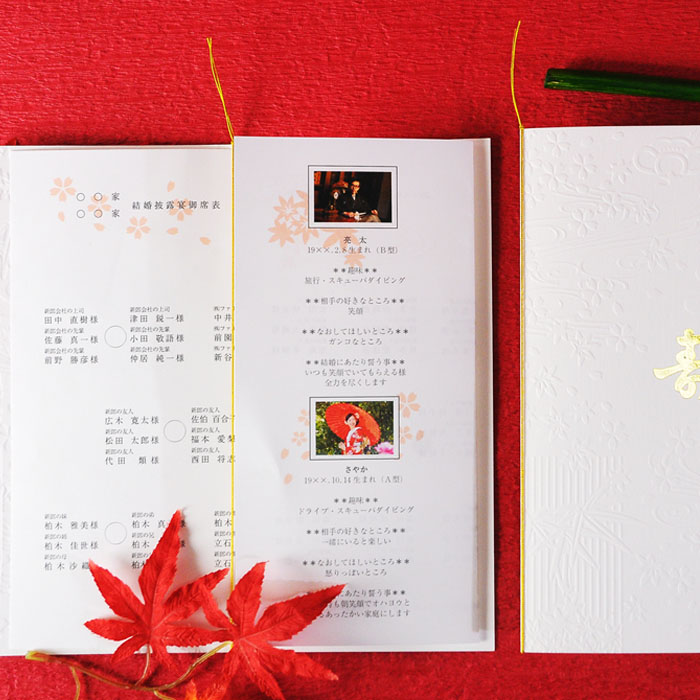 ○ ○ 家
○ ○ 家
結婚披露宴御席表
新郎会社の上司
田中 直樹様
新郎会社の先輩
佐藤 真一様
新郎会社の先輩
前野 勝彦様
新郎会社の上司
津田 鋭一様
新郎会社の先輩
小田 敬語様
新郎会社の先輩
仲居 純一様
中井
前園
新谷
新郎の友人
広木 寛太様
新郎の友人
松田 太郎様
新郎の友人
代田 類様
新郎の友人
佐伯 百合子
新郎の友人
福本 愛梨
新郎の友人
西田 将志
新郎の妹
柏木 雅美様
新郎の姉
柏木 佳世様
新郎の母
柏木 沙織
新郎の弟
柏木 真
新郎の兄
柏木
新郎の父
柏木
柏木
立石
立石
亮 太
19××.2.8生まれ(B型)
**趣味**
旅行・スキューバダイビング
**相手の好きなところ**
笑顔
**なおしてほしいところ**
ガンコなところ
**結婚にあたり誓う事**
いつも笑顔でいてもらえる様
全力を尽くします
さやか
19××.10.14生まれ(A型)
**趣味**
ドライブ・スキューバダイビング
**相手の好きなところ**
一緒にいると楽しい
**なおしてほしいところ**
怒りっぽいところ
にあたり誓う事**
も朝笑顔でオハヨウと
あったかい家庭にします